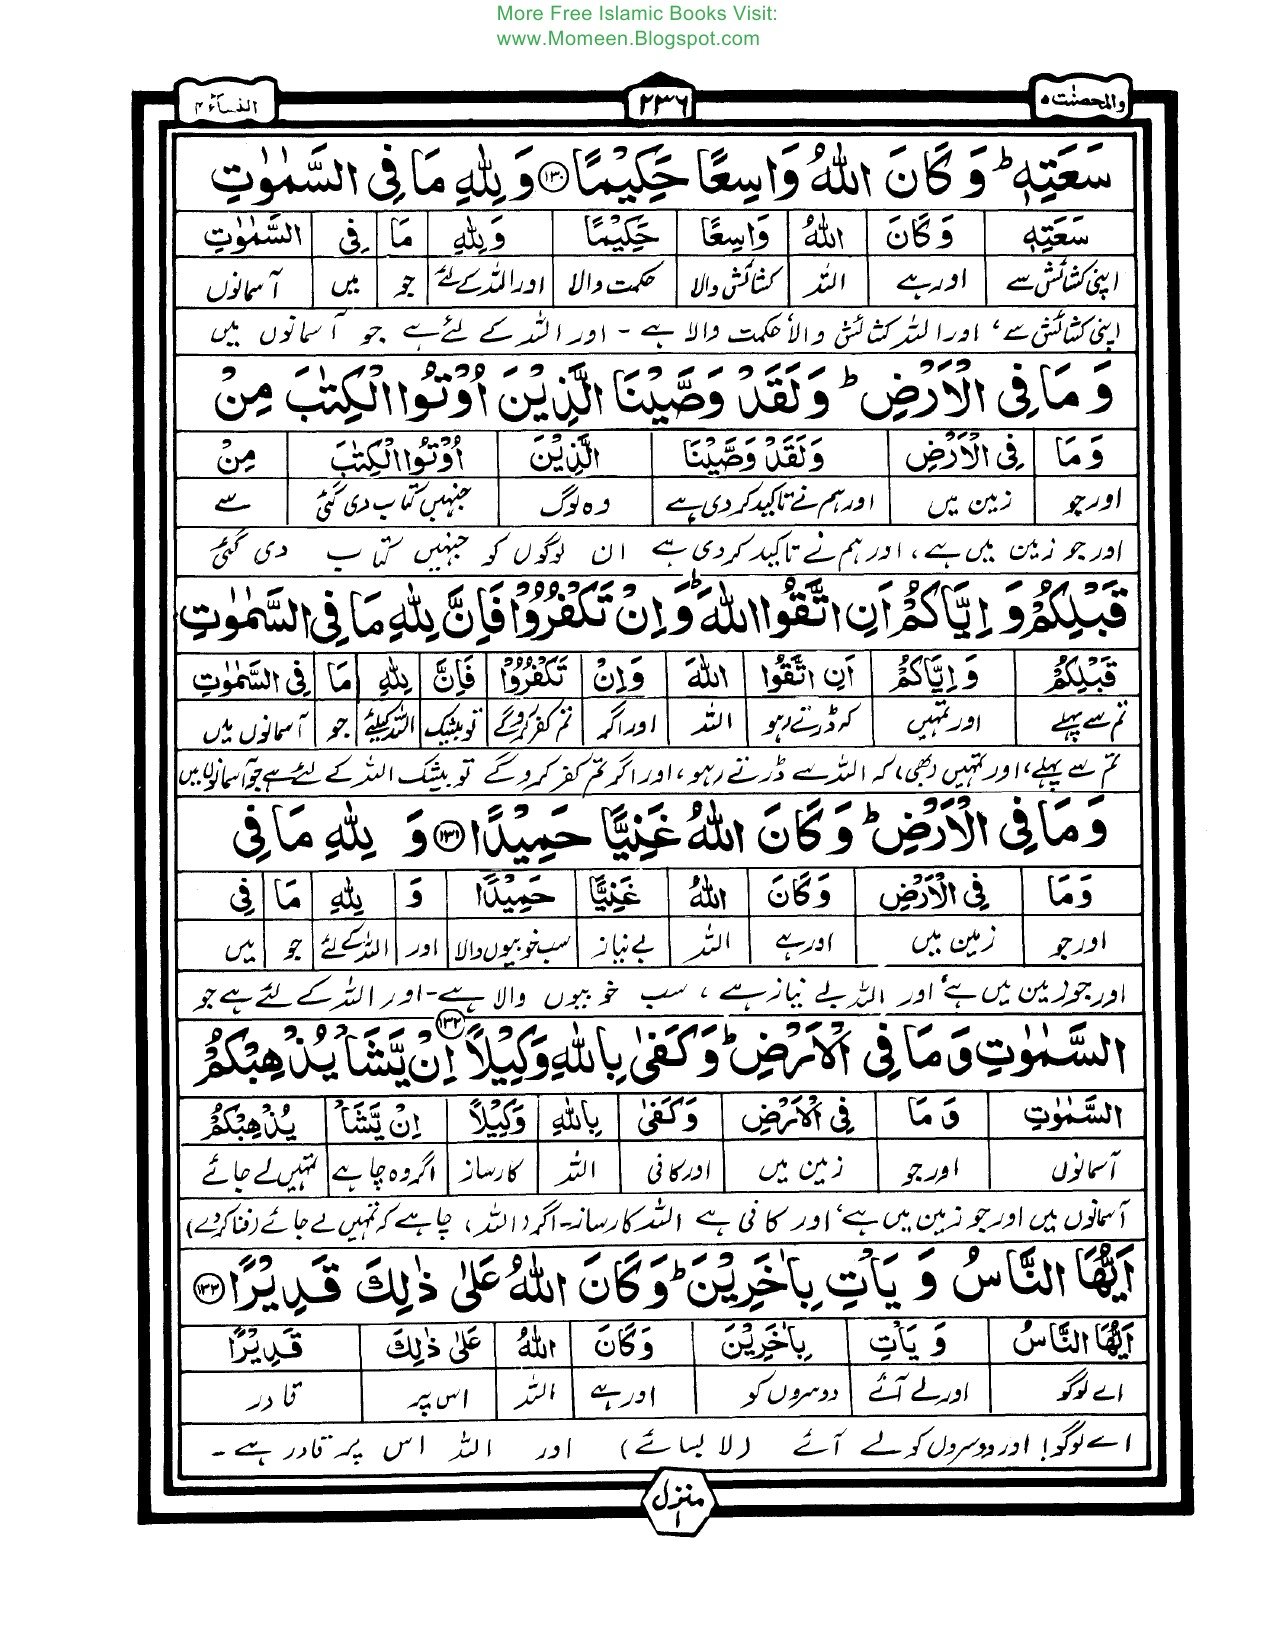 More Free Islamic Books Visit:
www.Momeen.Blogspot.com
والمحصنٰت ۵ ۲۳۶ النساء ۴
سَعَتِهٖ ؕ وَ كَانَ اللّٰهُ وَاسِعًا حَكِیْمًا ۝۱۳۰ وَ لِلّٰهِ مَا فِی السَّمٰوٰتِ
سَعَتِهٖ وَ كَانَ اللّٰهُ وَاسِعًا حَكِیْمًا وَ لِلّٰهِ مَا فِی السَّمٰوٰتِ
اپنی کشائش سے اور ہے اللہ کشائش والا حکمت والا اور اللہ کے لئے جو میں آسمانوں
اپنی کشائش سے، اور اللہ کشائش والا حکمت والا ہے - اور اللہ کے لئے ہے جو آسمانوں میں
وَ مَا فِی الْاَرْضِ ؕ وَ لَقَدْ وَصَّیْنَا الَّذِیْنَ اُوْتُوا الْكِتٰبَ مِنْ
وَ مَا فِی الْاَرْضِ وَ لَقَدْ وَصَّیْنَا الَّذِیْنَ اُوْتُوا الْكِتٰبَ مِنْ
اور جو زمین میں اور ہم نے تاکید کر دی ہے وہ لوگ جنہیں کتاب دی گئی سے
اور جو زمین میں ہے، اور ہم نے تاکید کر دی ہے ان لوگوں کو جنہیں کتاب دی گئی
قَبْلِكُمْ وَ اِیَّاكُمْ اَنِ اتَّقُوا اللّٰهَ ؕ وَ اِنْ تَكْفُرُوْا فَاِنَّ لِلّٰهِ مَا فِی السَّمٰوٰتِ
قَبْلِكُمْ وَ اِیَّاكُمْ اَنِ اتَّقُوا اللّٰهَ وَ اِنْ تَكْفُرُوْا فَاِنَّ لِلّٰهِ مَا فِی السَّمٰوٰتِ
تم سے پہلے اور تمہیں کہ ڈرتے رہو اللہ اور اگر تم کفر کرو گے تو بیشک اللہ کیلئے جو آسمانوں میں
تم سے پہلے، اور تمہیں (بھی) کہ اللہ سے ڈرتے رہو، اور اگر تم کفر کرو گے تو بیشک اللہ کے لئے ہے جو آسمانوں میں
وَ مَا فِی الْاَرْضِ ؕ وَ كَانَ اللّٰهُ غَنِیًّا حَمِیْدًا ۝۱۳۱ وَ لِلّٰهِ مَا فِی
وَ مَا فِی الْاَرْضِ وَ كَانَ اللّٰهُ غَنِیًّا حَمِیْدًا وَ لِلّٰهِ مَا فِی
اور جو زمین میں اور ہے اللہ بے نیاز سب خوبیوں والا اور اللہ کے لئے جو میں
اور جو زمین میں ہے، اور اللہ بے نیاز ہے، سب خوبیوں والا ہے - اور اللہ کے لئے ہے جو
السَّمٰوٰتِ وَ مَا فِی الْاَرْضِ ؕ وَ كَفٰی بِاللّٰهِ وَكِیْلًا ۝۱۳۲ اِنْ یَّشَاْ یُذْهِبْكُمْ
السَّمٰوٰتِ وَ مَا فِی الْاَرْضِ وَ كَفٰی بِاللّٰهِ وَكِیْلًا اِنْ یَّشَاْ یُذْهِبْكُمْ
آسمانوں اور جو زمین میں اور کافی اللہ کارساز اگر وہ چاہے تمہیں لے جائے
آسمانوں میں اور جو زمین میں ہے، اور کافی ہے اللہ کارساز - اگر (اللہ) چاہے کہ تمہیں لے جائے (فنا کر دے)
اَیُّهَا النَّاسُ وَ یَاْتِ بِاٰخَرِیْنَ ؕ وَ كَانَ اللّٰهُ عَلٰی ذٰلِكَ قَدِیْرًا ۝۱۳۳
اَیُّهَا النَّاسُ وَ یَاْتِ بِاٰخَرِیْنَ وَ كَانَ اللّٰهُ عَلٰی ذٰلِكَ قَدِیْرًا
اے لوگو اور لے آئے دوسروں کو اور ہے اللہ اس پر قادر
اے لوگو! اور دوسروں کو لے آئے (لا بسائے) اور اللہ اس پر قادر ہے -
منزل ۱